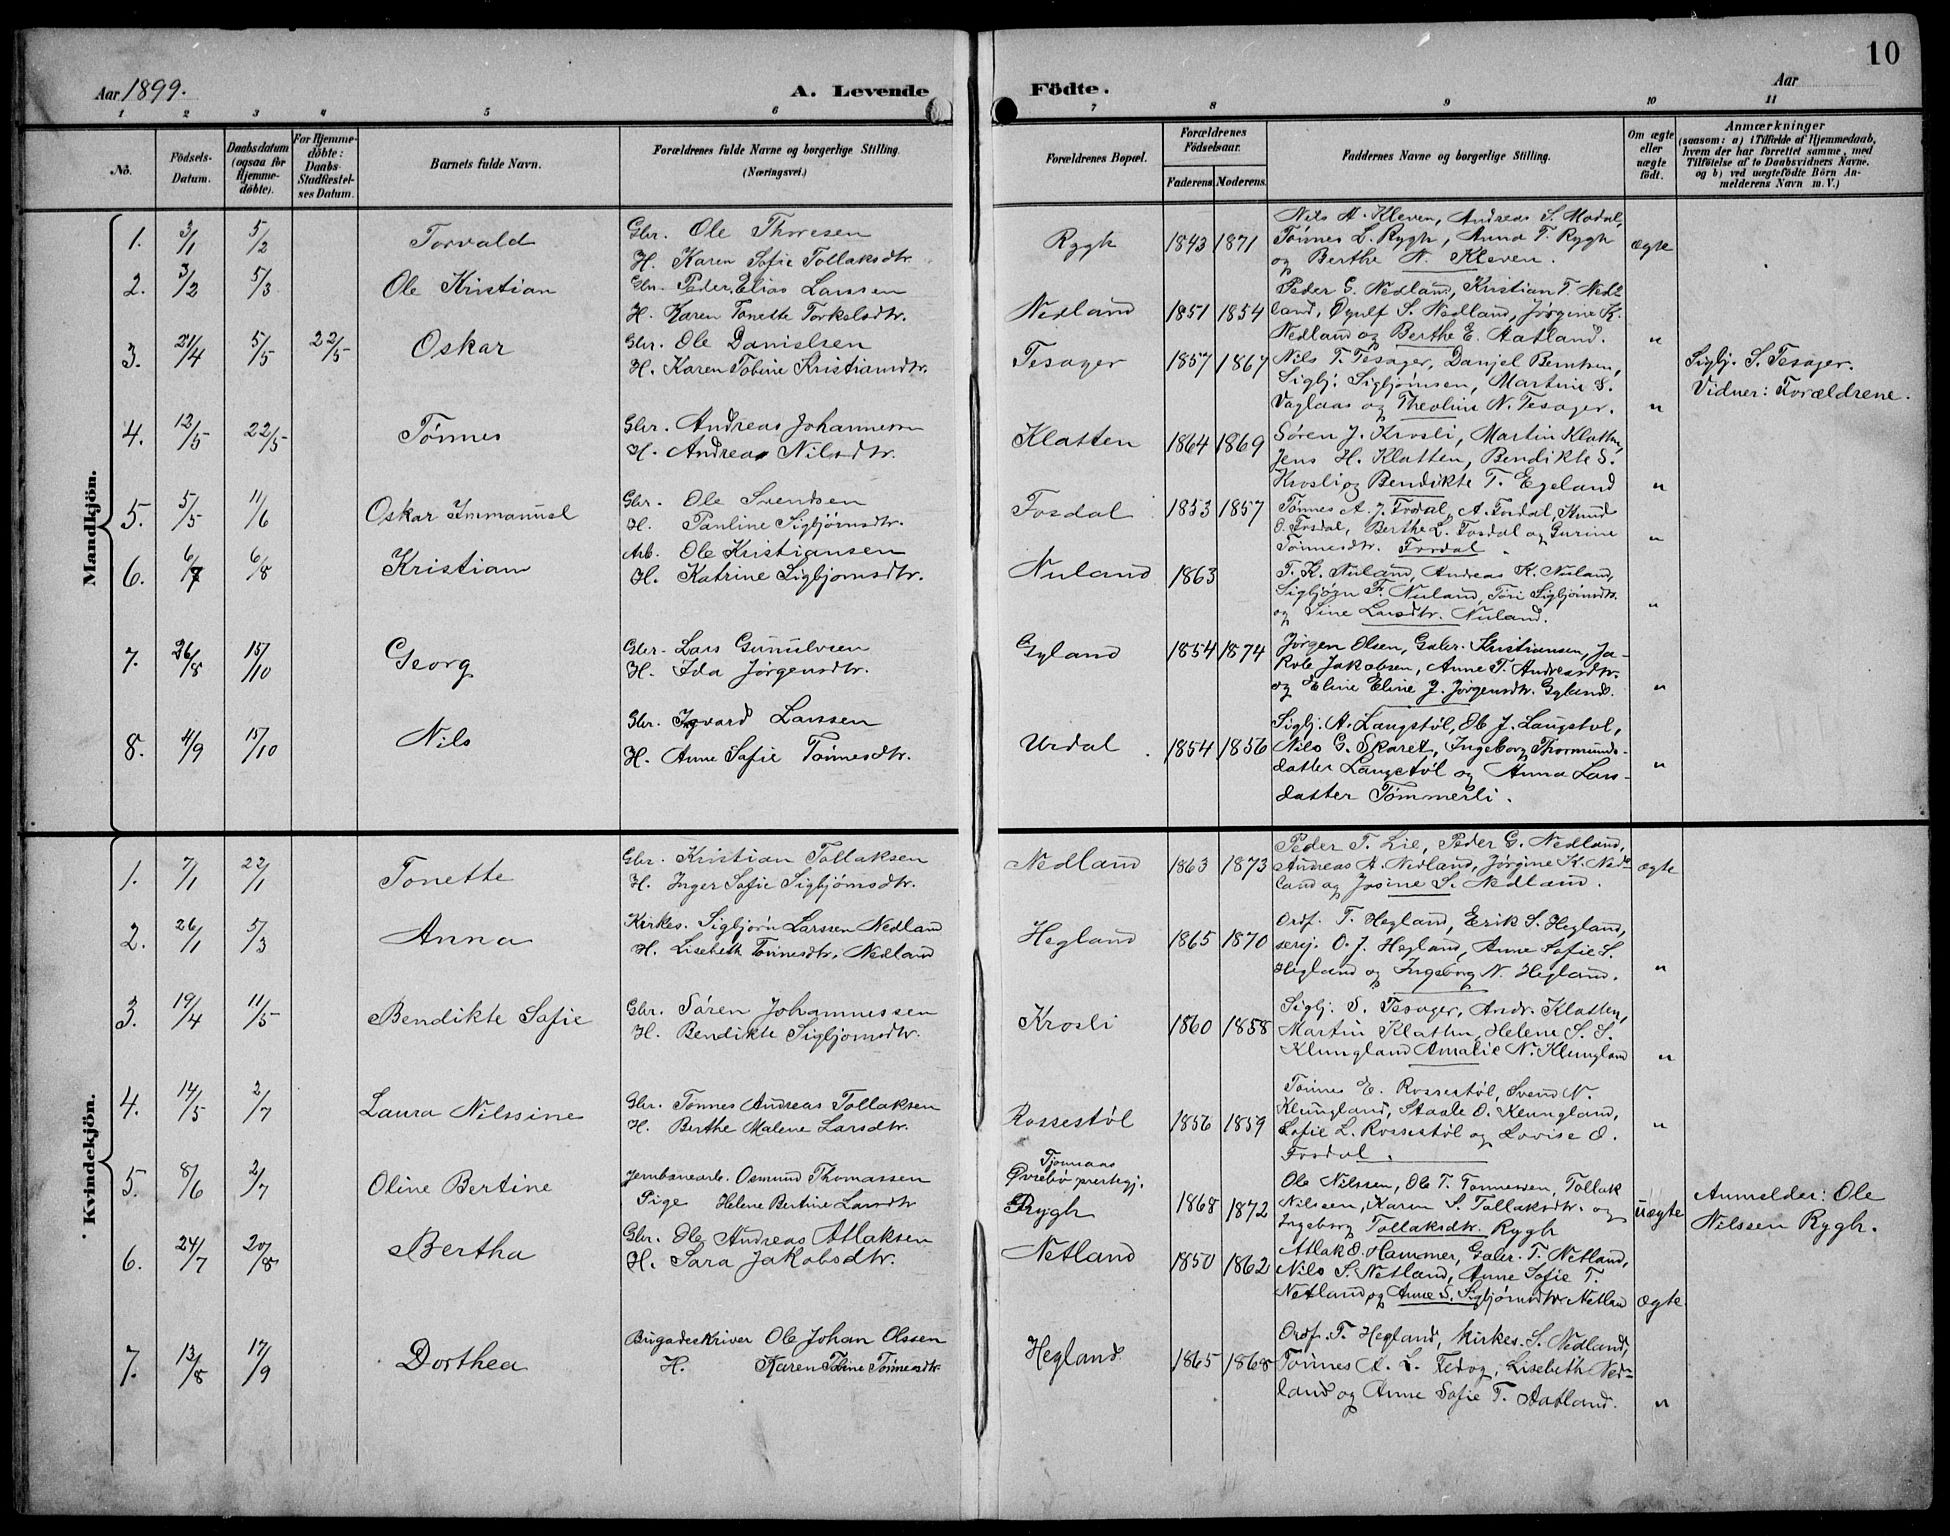 10
Aar 1899.
A. Levende Födte.
Aar
1 2 3 4 5 6 7 8 9 10 11
No.
Födsels-Datum.
Daabsdatum (ogsaa för Hjemme-döbte).
For Hjemme-döbte: Daabs Stadfæstel-ses Datum.
Barnets fulde Navn.
Forældrenes fulde Navne og borgerlige Stilling. (Næringsvei.)
Forældrenes Bopæl.
Forældrenes Födselsaar.
Faderens. Moderens.
Faddernes Navne og borgerlige Stilling.
Om ægte eller uægte födt.
Anmærkninger
(saasom: a) i Tilfælde af Hjemmedaab,
hvem der har forrettet samme, med
Tilföielse af to Daabsvidners Navne.
og b) ved uægtefödte Börn An-
melderens Navn m. V.)
Mandkjön.
1. 3/1 5/2 Torvald
Gbr. Ole Thoresen
H. Karen Sofie Tollaksdtr.
Rygh 1843 1871
Nils A. Kleven, Andreas S. Modal,
Tönnes L. Rygh, Anna T. Rygh
og Berthe N. Kleven.
ægte
2. 3/2 5/3 Ole Kristian
Gbr. Peder Elias Larssen
H. Karen Tonette Torkelsdtr.
Nedland 1851 1854
Peder G. Nedland, Kristian T. Nedl-
land, Öyulf S. Nedland, Jørgine K.
Nedland og Berthe E. Aatland.
"
3. 21/4 5/5 22/5 Oskar
Gbr. Ole Danielsen
H. Karen Tobine Kristiansdtr.
Tesager 1857 1867
Nils T. Tesager, Danjel Berntsen,
Sigbj. Sigbjørnsen, Martine S.
Vaglaas og Theoline N. Tesager.
"
Sigbj. S. Tesager.
Vidner: Forældrene.
4. 12/5 22/5 Tønnes
Gbr. Andreas Johannesen
H. Andrea Nilsdtr.
Klatten 1864 1869
Søren J. Krosli, Martin Klatten,
Jens H. Klatten, Bendikte S.
Krosli og Bendikte T. Egeland
"
5. 5/5 11/6 Oskar Immanuel
Gbr. Ole Svendsen
H. Pauline Sigbjørnsdtr.
Fosdal 1853 1857
Tønnes A. J. Fosdal, A. Fosdal, Knud
O. Fosdal, Berthe L. Fosdal og Gurine
Tønnesdtr. Fosdal
"
6. 6/7 6/8 Kristian
Arb. Ole Kristiansen
H. Katrine Sigbjørnsdtr.
Nuland 1863
T. K. Nuland, Andreas K. Nuland,
Sigbjørn F. Nuland, Tori Sigbjørnsdtr.
og Sine Larsdtr. Nuland.
"
7. 26/8 15/10 Georg
Gbr. Lars Gunulvsen
H. Ida Jørgensdtr.
Gyland 1854 1874
Jørgen Olsen, Gabr. Kristiansen, Ja-
kob Jakobsen, Anne T. Andreasdtr.
og Eline Eline J. Jørgensdtr. Gyland.
"
8. 4/9 15/10 Nils
Gbr. Ingvard Larssen
H. Anne Sofie Tønnesdtr.
Urdal 1854 1856
Sigbj. A. Langstøl, Ole J. Langstøl,
Nils G. Skaret, Ingeborg Thormunds-
datter Langstøl og Anna Lars-
datter Tømmerli.
"
Kvindekjön.
1. 7/1 22/1 Tonette
Gbr. Kristian Tollaksen
H. Inger Sofie Sigbjørnsdtr.
Nedland 1863 1873
Peder T. Lie, Peder G. Nedland,
Andreas A. Nedland, Jørgine K. Ned-
land og Josine S. Nedland.
ægte
2. 26/1 5/3 Anna
Kirkes. Sigbjørn Larssen Nedland
H. Lisebeth Tønnesdtr. Nedland
Hegland 1865 1870
Ordf. T. Hegland, Erik S. Hegland,
sersj. O. J. Hegland, Anne Sofie S.
Hegland og Ingeborg N. Hegland.
"
3. 19/4 11/5 Bendikte Sofie
Gbr. Søren Johannessen
H. Bendikte Sigbjørnsdtr.
Krosli 1860 1858
Sigbj. S. Tesager, Andr. Klatten,
Martin Klatten, Helene S. S.
Klungland Amalie N. Klungland
"
4. 14/5 2/7 Laura Nilssine
Gbr. Tønnes Andreas Tollaksen
H. Berthe Malene Larsdtr.
Rossestøl 1856 1859
Tønnes E. Rossestøl, Svend N.
Klungland, Staale O. Klungland,
Sofie L. Rossestøl og Lovise O.
Fosdal.
"
5. 8/6 2/7 Oline Bertine
Jernbanearb. Osmund Thomassen
Pige Helene Bertine Larsdtr
Tjomsaas
Øvrebø prestegj.
Rygh 1868 1872
Ole Nilssen, Ole T. Tønnessen, Tollak
Nilssen, Karen S. Tollaksdtr. og
Ingeborg Tollaksdtr. Rygh
uægte
Anmelder: Ole
Nilssen Rygh.
6. 24/7 20/8 Bertha
Gbr. Ole Andreas Atlaksen
H. Sara Jakobsdtr.
Netland 1850 1862
Atlak O. Hammer, Gabr. T. Netland,
Nils S. Netland, Anne Sofie T.
Netland og Anne S. Sigbjørnsdtr. Netland
ægte.
7. 13/8 17/9 Dorthea
Brigadeskriver Ole Johan Olssen
H. Karen Tobine Tønnesdtr
Hegland. 1865 1868
Ordf. T. Hegland, Kirkes. S. Nedland,
Tønnes A. L. Fedog, Lisebeth Ned-
land og Anne Sofie T. Aatland.
"